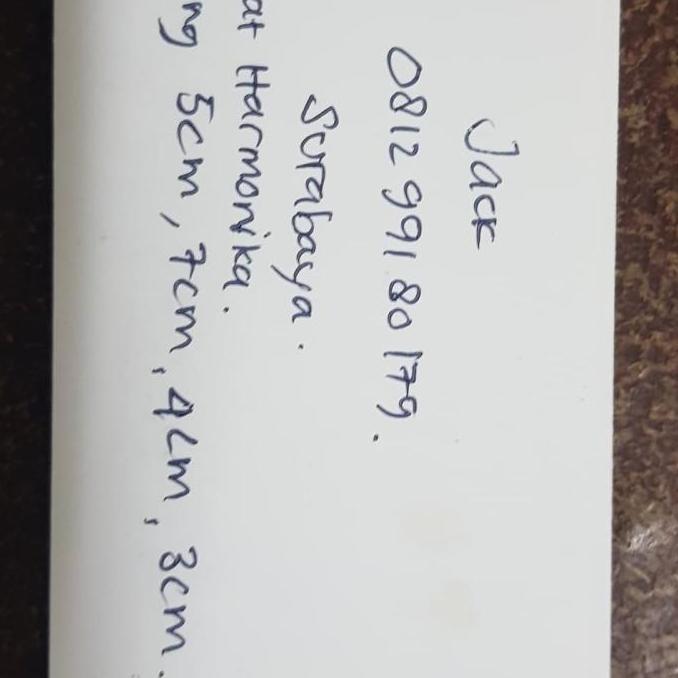 Jack
0812 991 80 179.
Surabaya.
at Harmonika.
ng 5cm, 7cm, 4cm, 3cm.